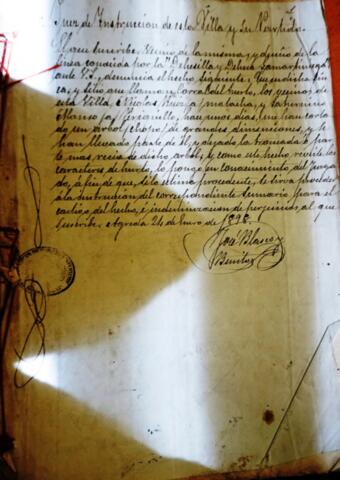 Juez de Instruccion de esta Villa y su Partido.
El que suscribe, vecino de la misma, y dueño de la
finca conocida por la Dehesilla y Dehesa
ante V.S. denuncia el hecho siguiente; Que en dicha fin-
ca, y sitio que llaman, los vecinos de
esta Villa, Nicolas Ruiz y
Alonso hace unos dias, me han corta-
do un arbol, chopo, de grandes dimensiones, y se
han llevado parte de el, y dejado la tronzada á par-
te mas recia de dicho arbol, y como este hecho reviste los
caracteres de hurto, lo pongo en conocimiento del Juzga-
do, á fin de que, si lo estima procedente, se sirva proceder
á la instruccion del correspondiente sumario para el
castigo del hecho, é indemnizacion de perjuicios al que
suscribe. Agreda 24 de Enero de 1898.
José Blasco y
Benitez